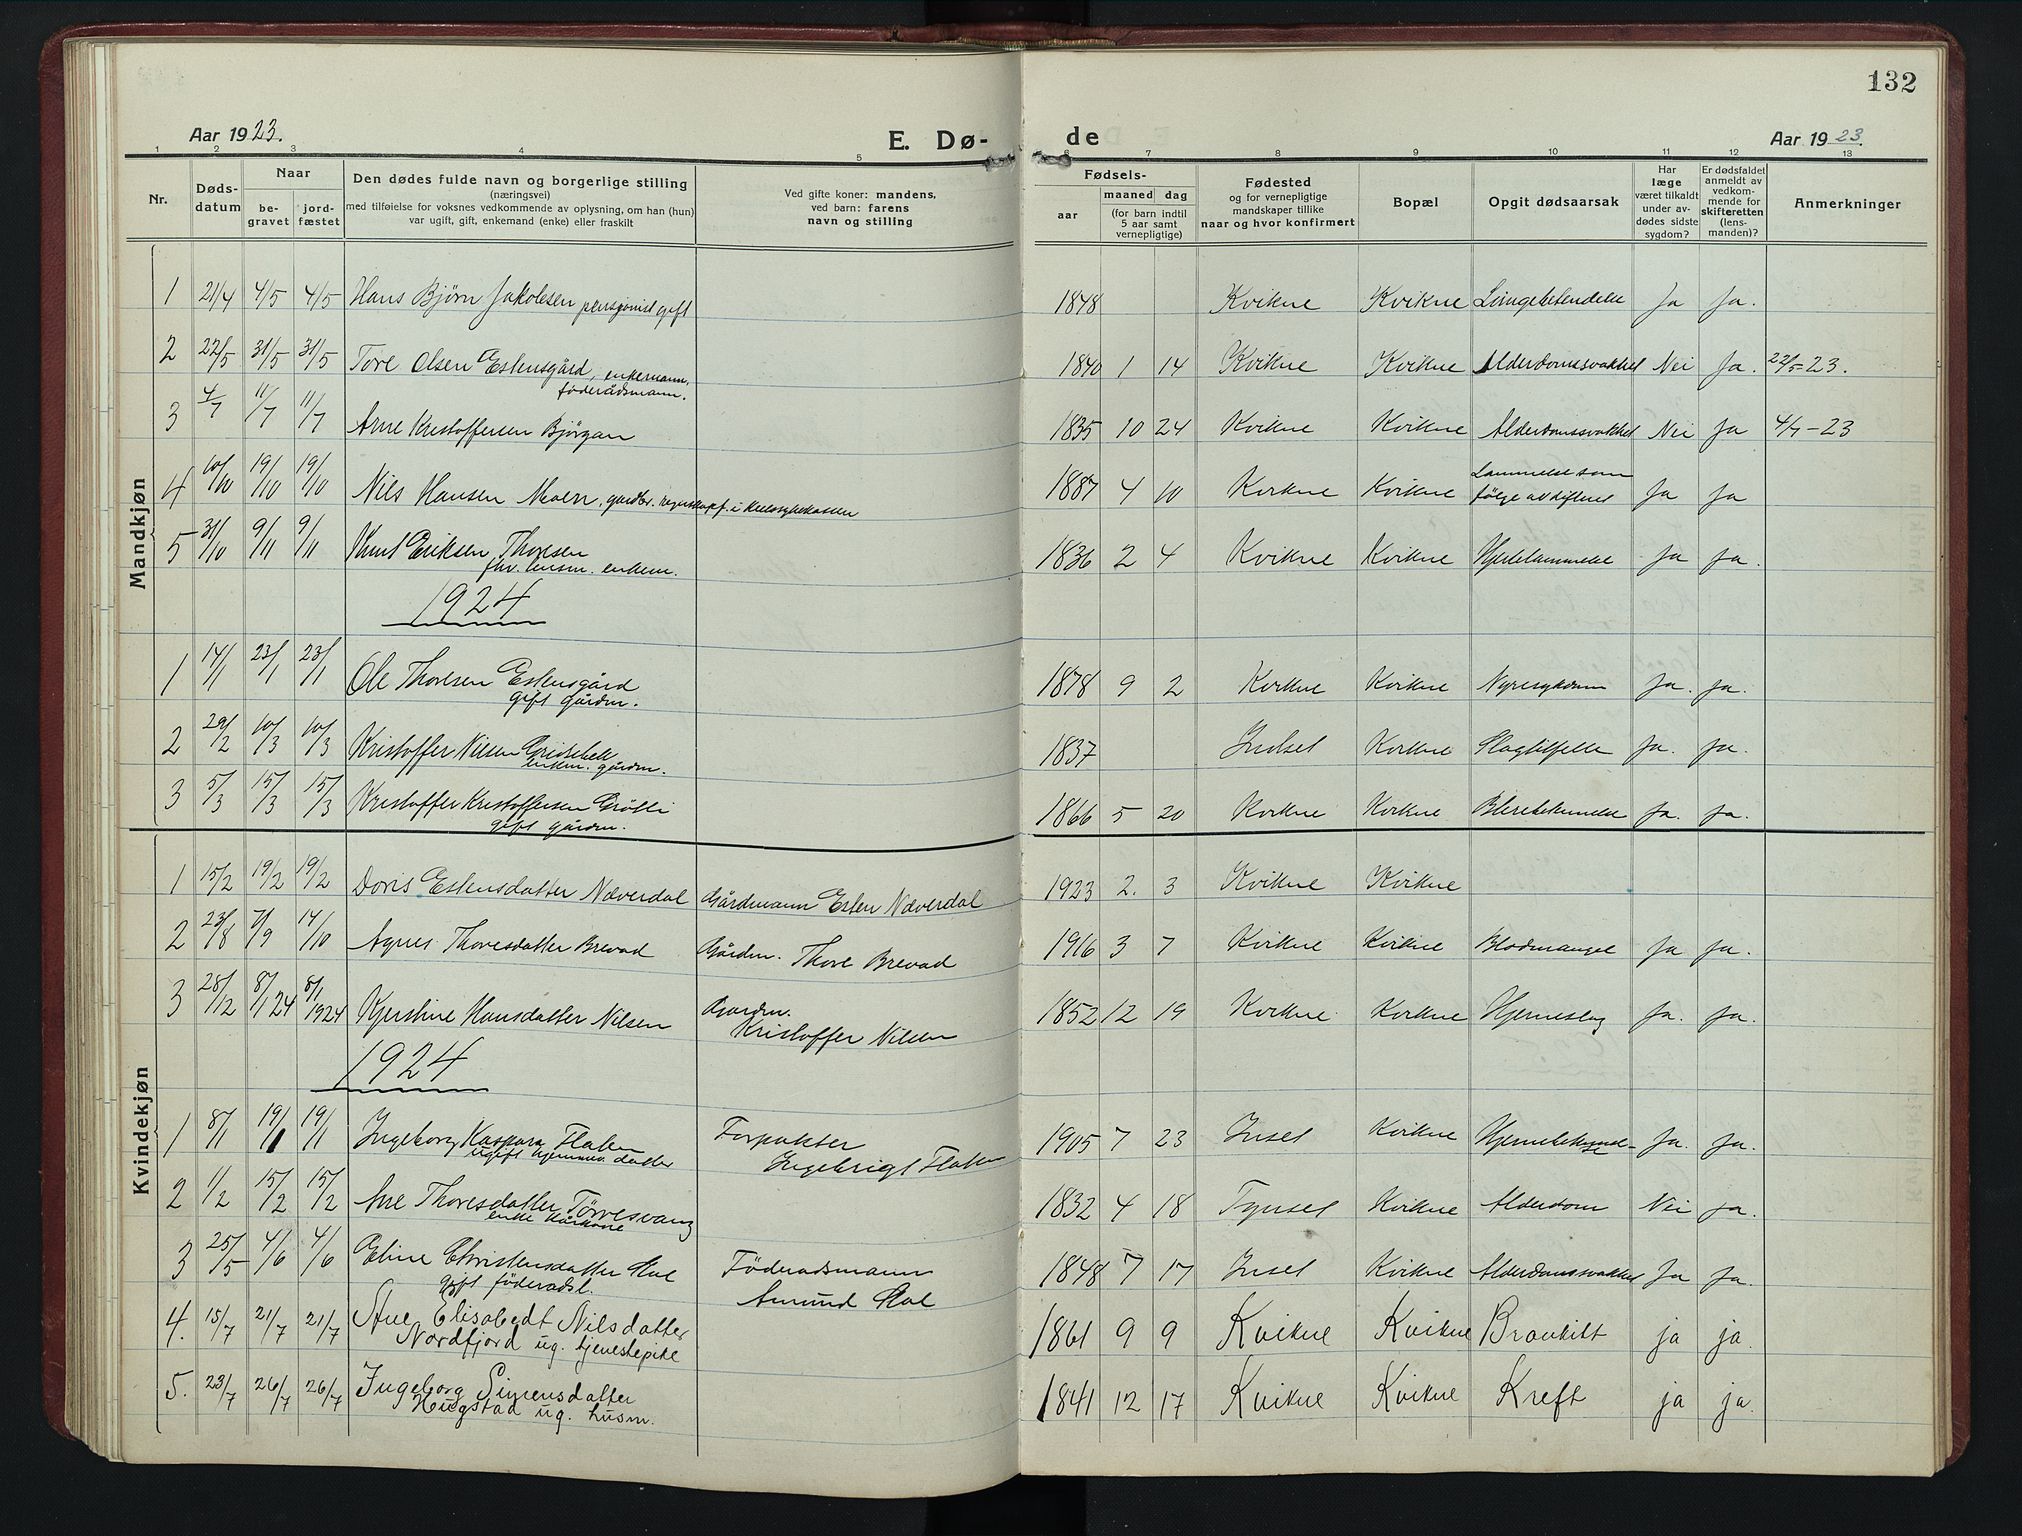 132
Aar 1923.
E. Dø-
de
Aar 1923.
1 2 3 4 5 6 7 8 9 10 11 12 13
Nr.
Døds-
datum
Naar
be-
gravet
jord-
fæstet
Den dødes fulde navn og borgerlige stilling
(næringsvei)
med tilføielse for voksnes vedkommende av oplysning, om han (hun)
var ugift, gift, enkemand (enke) eller fraskilt
Ved gifte koner: mandens,
ved barn: farens
navn og stilling
Fødsels-
aar
maaned dag
(for barn indtil
5 aar samt
vernepligtige)
Fødested
og for vernepligtige
mandskaper tillike
naar og hvor konfirmert
Bopæl
Opgit dødsaarsak
Har
læge
været tilkaldt
under av-
dødes sidste
sygdom?
Er dødsfaldet
anmeldt av
vedkom-
mende for
skifteretten
(lens-
manden)?
Anmerkninger
Mandkjøn
1 21/4 4/5 4/5 Hans Bjørn Jakobsen pensjonist gift 1848 Kvikne Kvikne Lungebetendelse Ja Ja.
2 22/5 31/5 31/5 Tore Olsen Estensgård, enkemann, 1840 1 14 Kvikne Kvikne Alderdomssvakhet Nei Ja. 22/5-23.
föderådsmann.
3 4/7 11/7 11/7 Arne Kristoffersen Bjørgan 1835 10 24 Kvikne Kvikne Alderdomssvakhet Nei Ja 4/7-23
4 10/10 19/10 19/10 Nils Hansen Moen, gardbr. regnskapsf. i 1887 4 10 Kvikne Kvikne Lammelse som
følge av difterit Ja Ja
5 31/10 9/11 9/11 Knut Eriksen Thoresen 1836 2 4 Kvikne Kvikne Hjertelammelse Ja Ja.
fhv. lensm. enkem.
1924
1 14/1 23/1 23/1 Ole Thoresen Estensgård 1878 9 2 Kvikne Kvikne Nyresykdom Ja. Ja.
gift gårdm.
2 29/2 10/3 10/3 Kristoffer Nilsen 1837 Indset Kvikne Slagtilfelle Ja. Ja.
enkem. gårdm.
3 5/3 15/3 15/3 Kristoffer Kristoffersen Grötli 1866 5 20 Kvikne Kvikne Ja. Ja.
gift gårdm.
Kvindekjøn
1 15/2 19/2 19/2 Doris Estensdatter Næverdal Gårdmann Esten Næverdal 1923 2. 3 Kvikne Kvikne
2 23/8 7/9 14/10 Agnes Thoresdatter Brevad Gårdm. Thore Brevad 1916 3 7 Kvikne Kvikne Blodmangel Ja Ja.
3 28/12 8/1 24 8/1 1924 Kjerstine Hansdatter Nilsen Gardm.
Kristoffer Nilsen 1852 12 19 Kvikne Kvikne Hjerneslag Ja. Ja.
1924
1 8/1 19/1 19/1 Ingeborg Kaspara Flaten Forpakter 1905 7 23 Inset Kvikne Ja. Ja.
ugift hjemmev. datter Ingebrigt Flaten
2 1/2 15/2 15/2 Ane Thoresdatter Törresvang 1832 4 18 Tynset Kvikne Alderdom Nei Ja.
enke kårkone
3 25/5 4/6 4/6 Eline Christensdatter Föderadsmann 1848 7 17 Inset Kvikne Alderdomssvakhet Ja Ja.
gift föderadsk. Amund
4. 15/7 21/7 21/7 Ane Elisabedt Nilsdatter 1861 9 9 Kvikne Kvikne ja ja.
Nordfjord ug. tjenestepike
5. 23/7 26/7 26/7 Ingeborg Simensdatter 1841 12 17 Kvikne Kvikne Kreft ja ja.
Hugstad ug. husm.